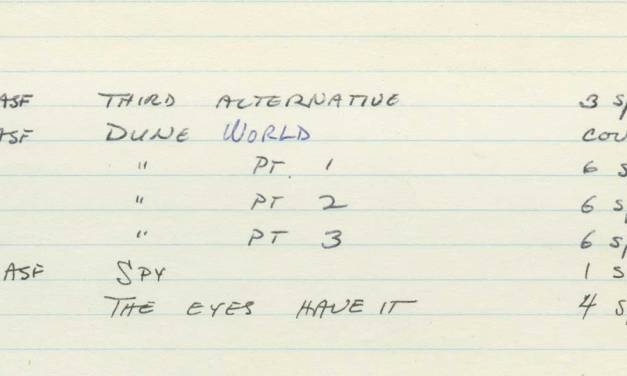 ASF THIRD ALTERNATIVE 3
ASF DUNE WORLD
" PT. 1 6
" PT 2 6
" PT 3 6
ASF SPY 1
THE EYES HAVE IT 4